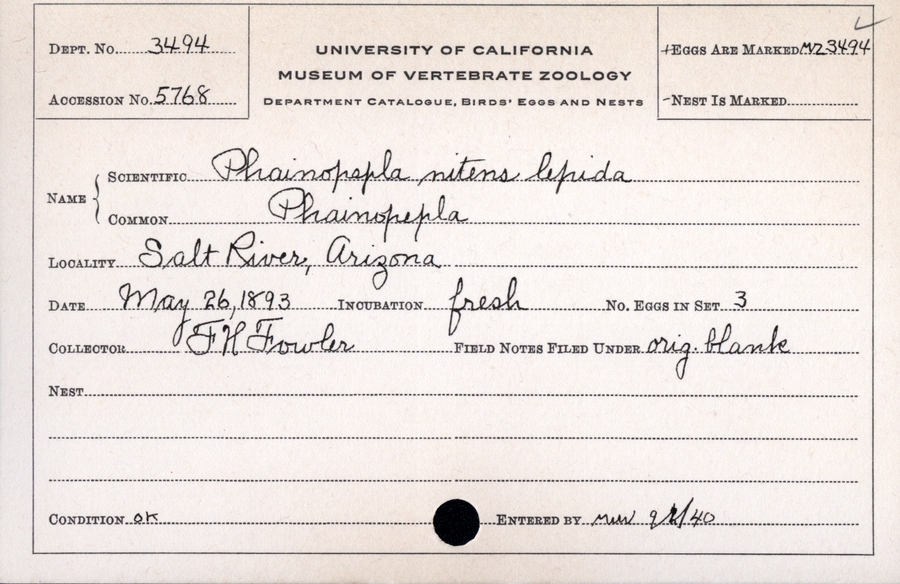 Dept. No. 3494
Accession No. 5768
UNIVERSITY OF CALIFORNIA
MUSEUM OF VERTEBRATE ZOOLOGY
Department Catalogue, Birds' Eggs and Nests
+Eggs Are Marked MVZ 3494
-Nest Is Marked
Name
Scientific Phainopepla nitens lepida
Common Phainopepla
Locality Salt River, Arizona
Date May 26, 1893 Incubation fresh No. Eggs in Set 3
Collector F H Fowler Field Notes Filed Under orig. blank
Nest
Condition OK Entered by